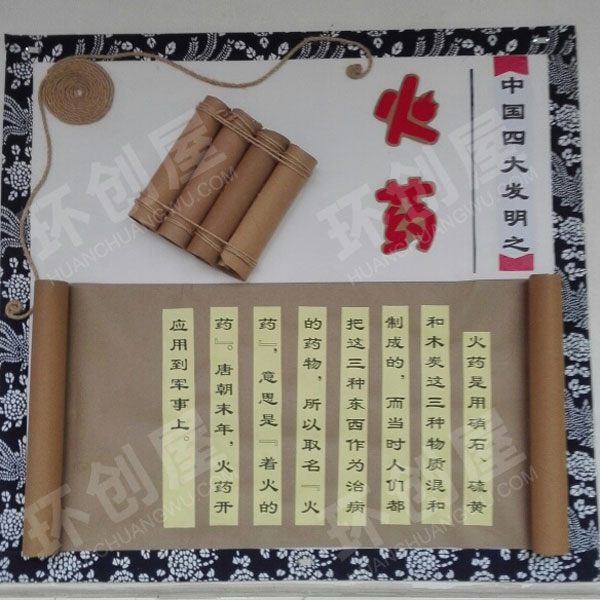 中国四大发明之
火药
火药是用硝石 硫黄
和木炭这三种物质混和
制成的，而当时人们都
把这三种东西作为治病
的药物，所以取名『火
药』，意思是『着火的
药』。唐朝末年，火药开
应用到军事上。
环创屋
HUANCHUANGWU.COM
环创屋
HUANCHUANGWU.COM
环创屋
HUANCHUANGWU.COM
环创屋
HUANCHUANGWU.COM